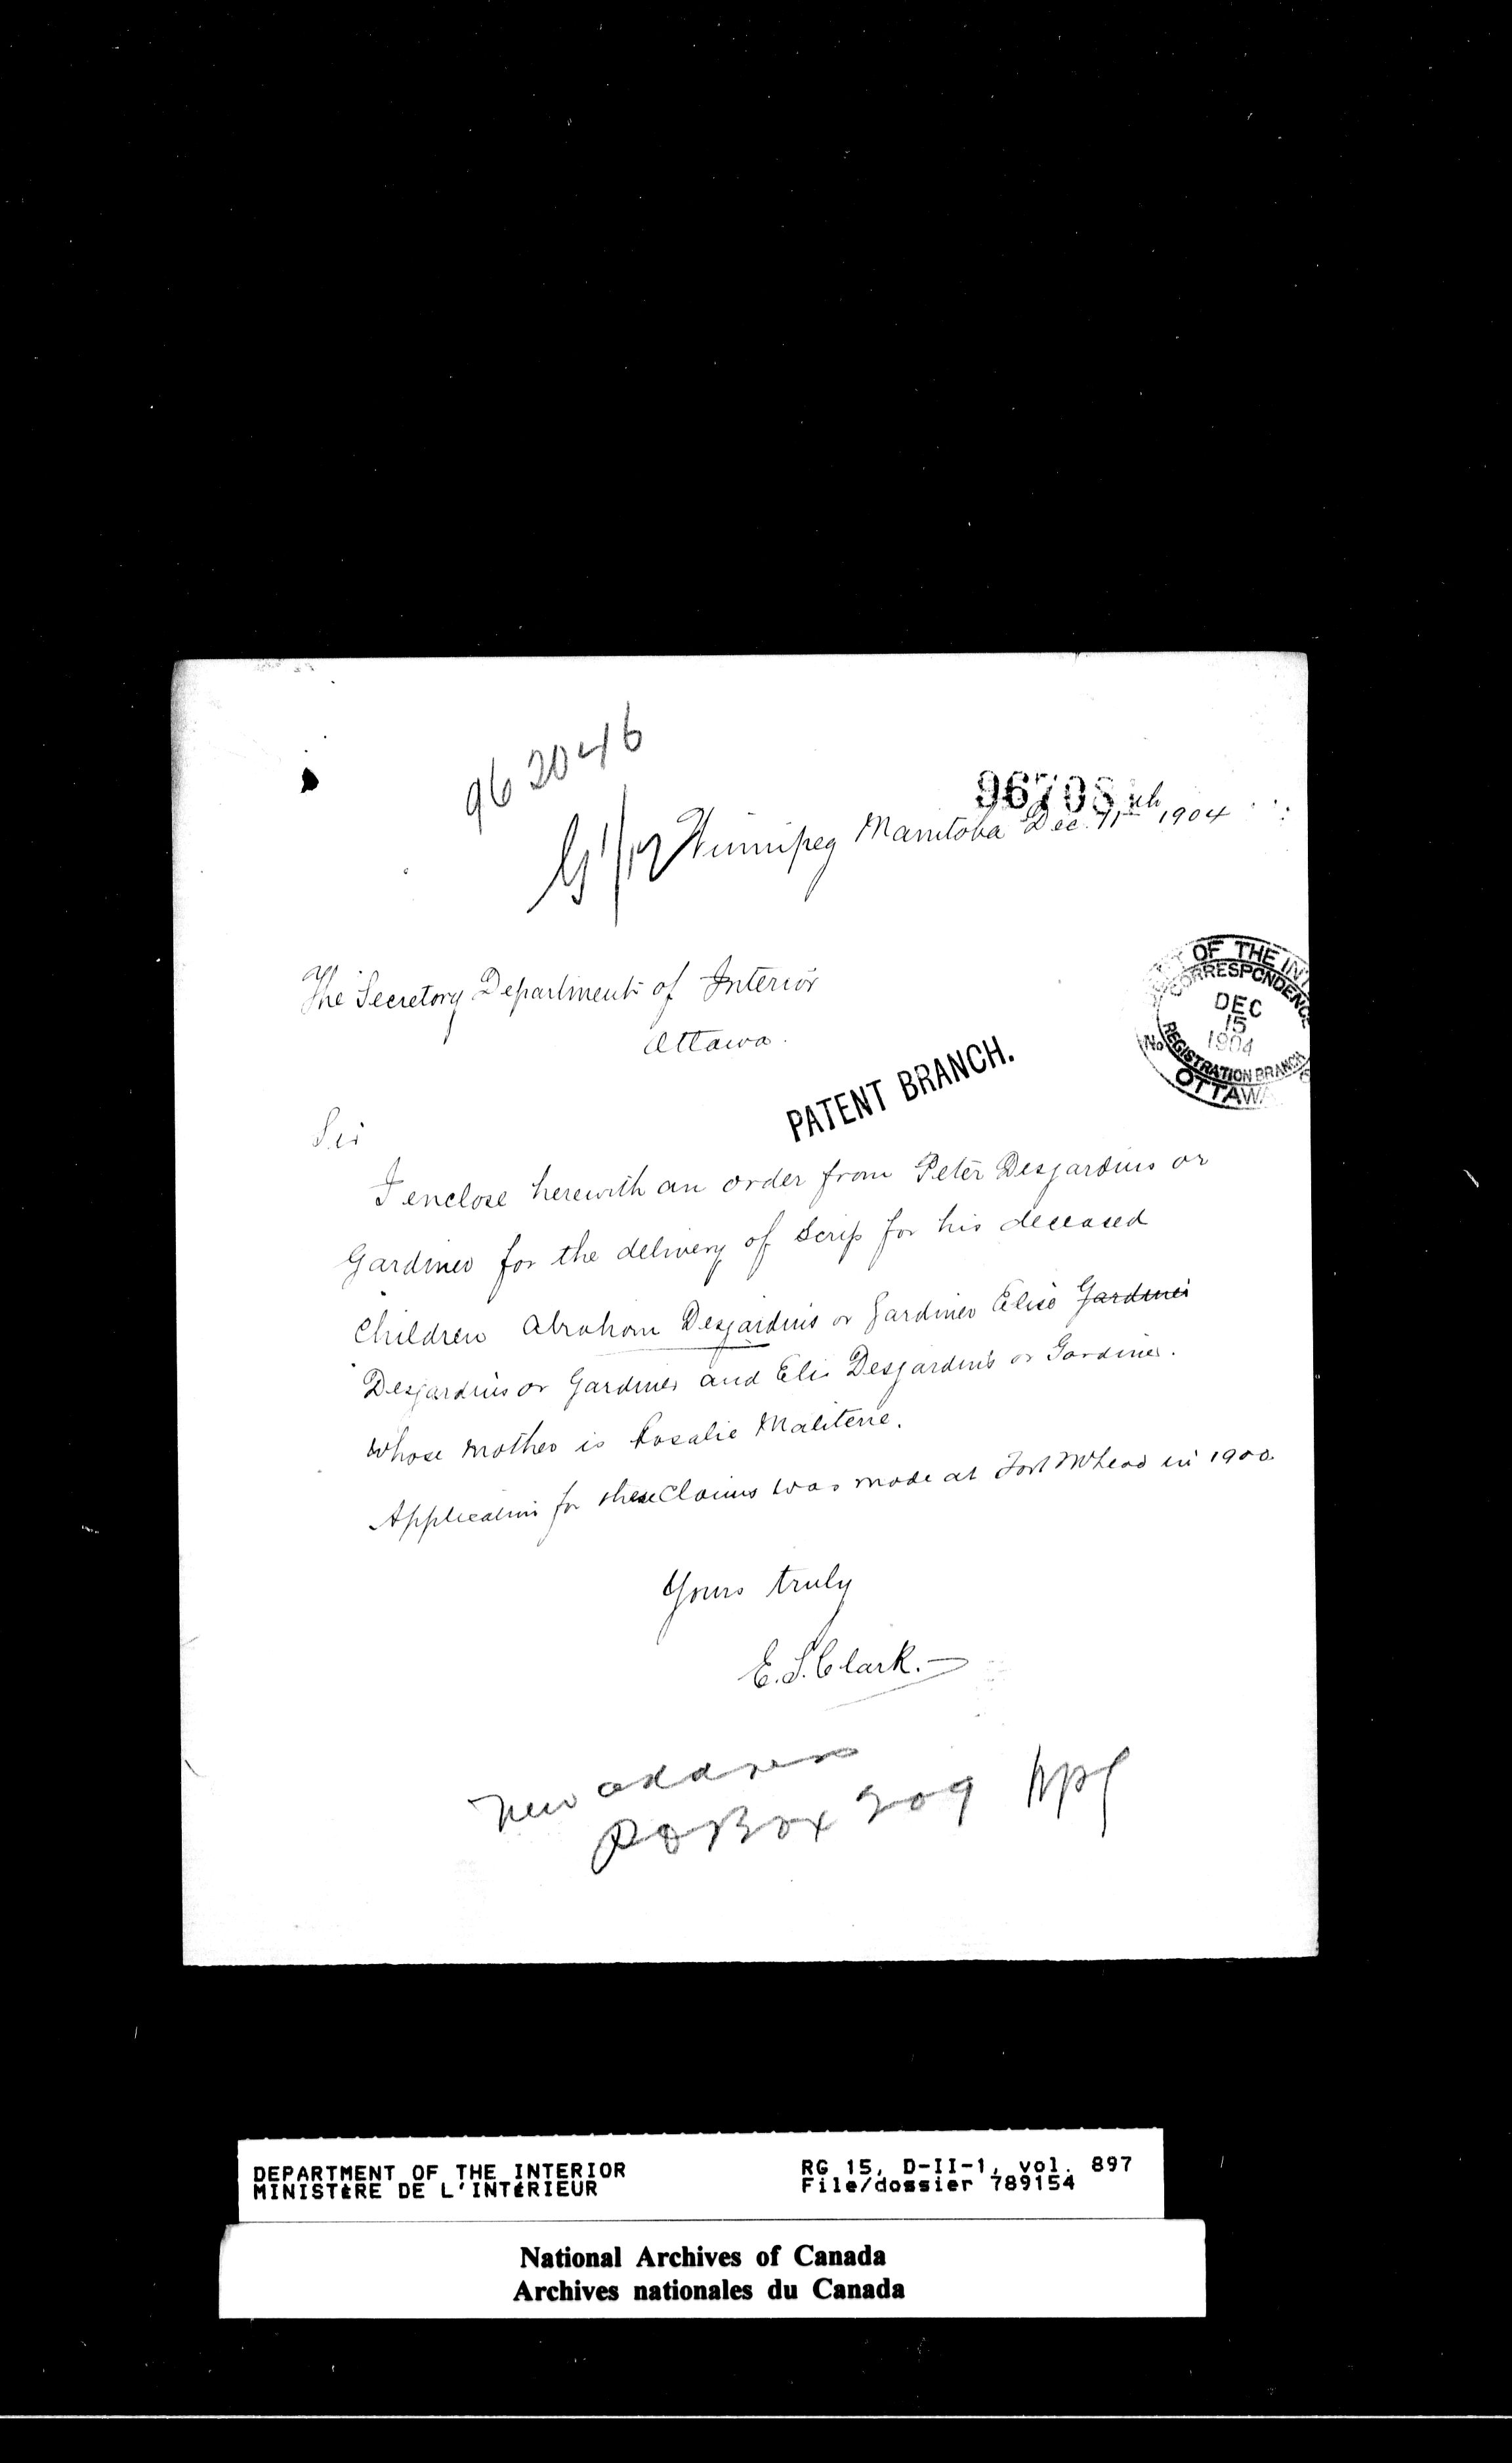 962046
967081
Winnipeg Manitoba Dec. 11th 1904
The Secretory Department of Interior
Ottawa.
DEPT OF THE INT
CORRESPONDENCE
DEC
15
1904
No
REGISTRATION BRANCH
OTTAWA
PATENT BRANCH.
Sir
I enclose herewith an order from Peter Desjardins or
Gardiner for the delivery of Scrip for his deceased
Children Abraham Desjardins or Gardiner Elise Gardiner
Desjardins or Gardiner and Elis Desjardins or Gardiner.
whose mother is Rosalie Maliterre.
Application for these Claims was made at Fort McLeod in 1900.
Yours truly
E. S. Clark.
New address
PO Box 909 Wpg
DEPARTMENT OF THE INTERIOR RG 15, D-II-1, vol. 897
MINISTÈRE DE L'INTÉRIEUR File/dossier 789154
National Archives of Canada
Archives nationales du Canada